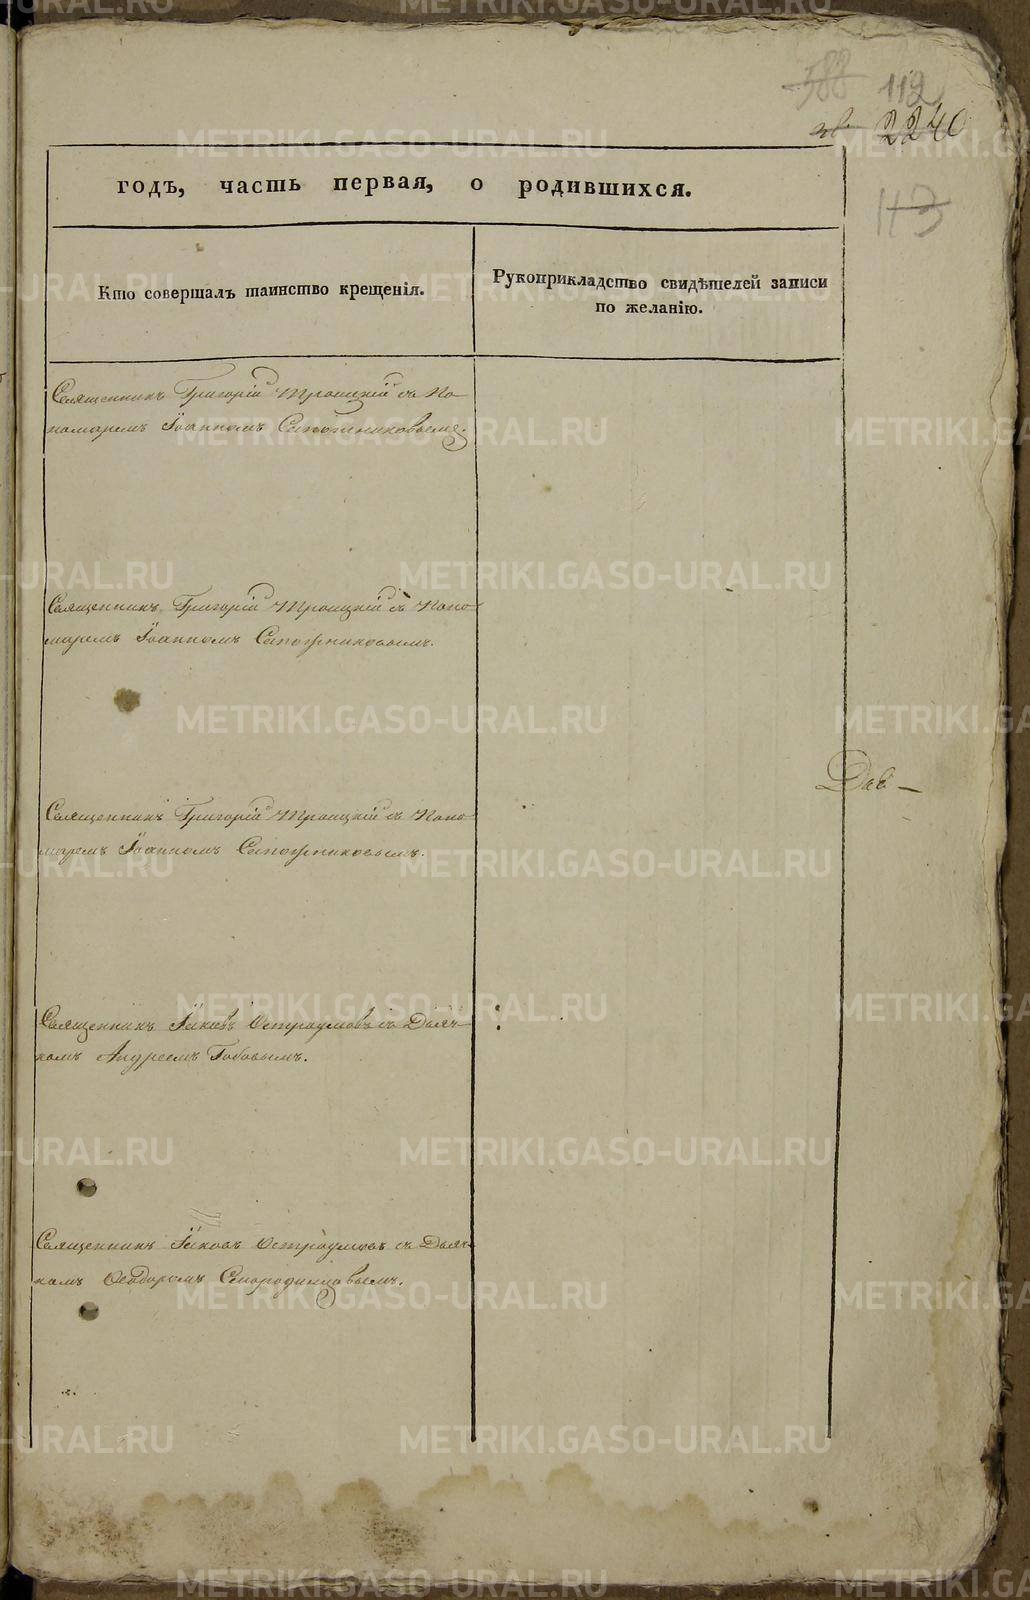 588 112
2240
113
годъ, часть первая, о родившихся.
Кто совершалъ таинство крещенія.
Рукоприкладство свидѣтелей записи
по желанію.
Священникъ Григорій Троицкій съ По-
номаремъ Іоанномъ Сапожниковымъ.
Священникъ Григорій Троицкій съ Поно-
маремъ Іоанномъ Сапожниковымъ.
Дав—
Священникъ Григорій Троицкій съ Поно-
маремъ Іоанномъ Сапожниковымъ.
Священникъ Іаковъ Остроумовъ съ Дьяч-
комъ Андреемъ Бобовымъ.
Священникъ Іаковъ Остроумовъ съ Дьяч-
комъ Ѳеодоромъ
METRIKI.GASO-URAL.RU